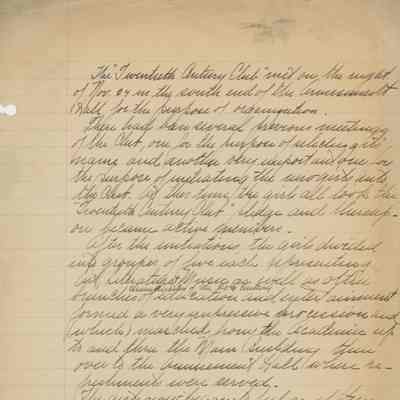 The "Twentieth Century Club" met on the night
of Nov. 24 in the south end of the Amusement
Hall for the purpose of organization.
There had been several previous meetings
of the Club, one for the purpose of selecting its
name and another very important one for
the purpose of initiating the new girls into
the Club. At this time the girls all took the
"Twentieth Century Club" pledge and thereup-
on became active members.
After the initiations the girls divided
into groups of five each representing
Art, Literature Music as well as other
branches of education and entertainment
formed a very impressive procession and
(which) marched from the Academic up
to and thru the Main Building then
over to the Amusement Hall where re-
freshments were served.